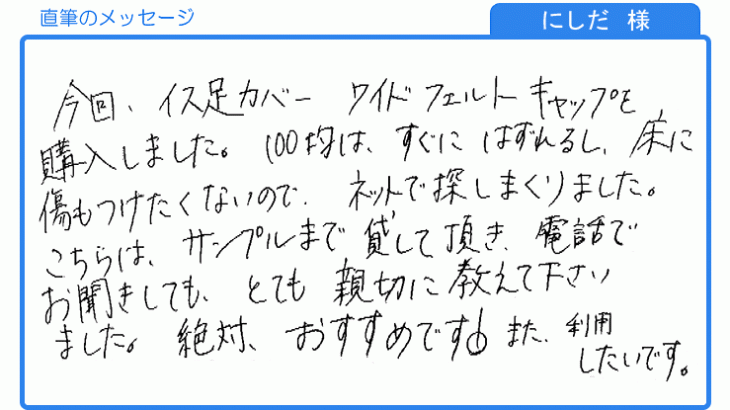 直筆のメッセージ
にしだ 様
今回、イス足カバー ワイドフェルトキャップを
購入しました。100均は、すぐに はずれるし、床に
傷もつけたくないので、ネットで探しまくりました。
こちらは、サンプルまで貸して頂き、電話で
お聞きしても、とても親切に教えて下さい
ました。絶対、おすすめです また、利用
したいです。